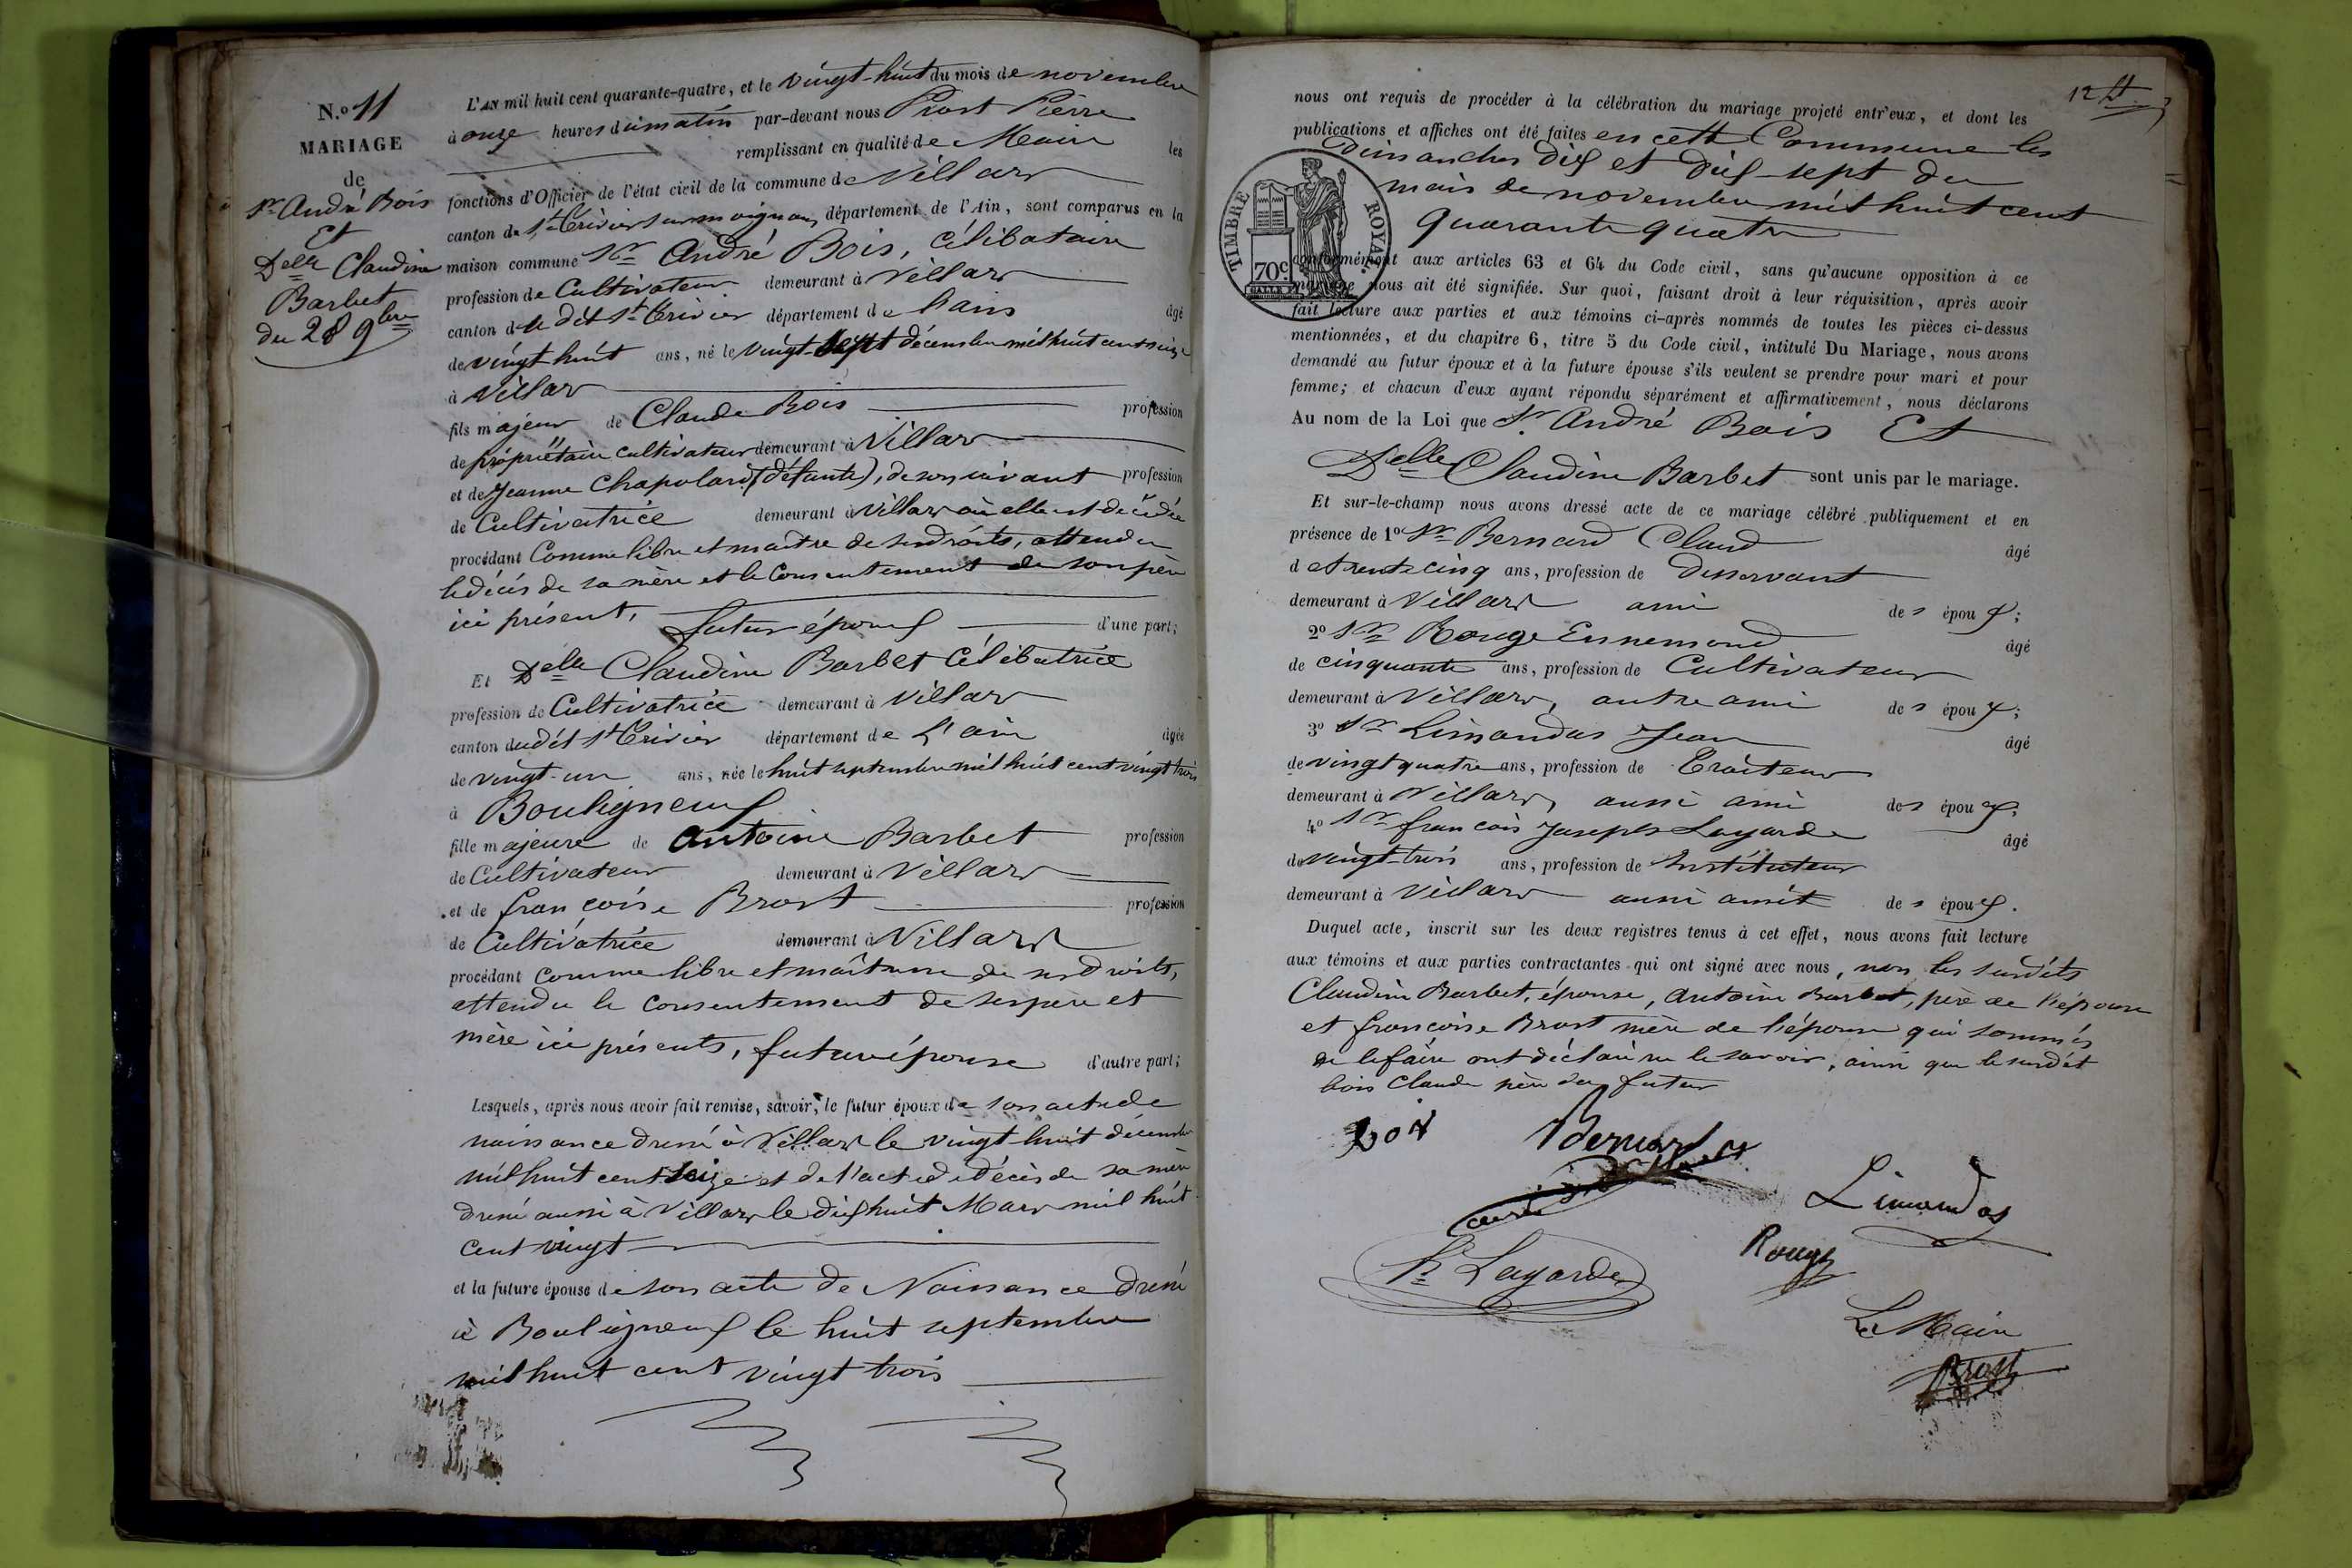 N.º 11
MARIAGE
de
Sr André Bois
Et
Delle Claudine
Barbet
du 28 9bre
L'AN mil huit cent quarante-quatre, et le vingt-huit du mois de novembre
à onze heures du matin par-devant nous Prost Pierre
remplissant en qualité de Maire les
fonctions d'Officier de l'état civil de la commune de Villars
canton de St Trivier sur moignans département de l'Ain, sont comparus en la
maison commune Sr André Bois, célibataire
profession de Cultivateur demeurant à Villars
canton du dit St Trivier département de l'ain âgé
de vingt huit ans, né le vingt-sept décembre mil huit cent seize
à Villars
fils majeur de Claude Bois profession
de propriétaire cultivateur demeurant à Villars
et de Jeanne Chapolard (défunte), de son vivant profession
de Cultivatrice demeurant à Villars où elle est décédée
procédant Comme libre et maître de ses droits, attendu
le décès de sa mère et le Consentement de son père
ici présent, futur époux d'une part;
Et Delle Claudine Barbet Célibatrice
profession de Cultivatrice demeurant à Villars
canton dudit St Trivier département de L'ain âgée
de vingt-un ans, née le huit septembre mil huit cent vingt trois
à Bouligneux
fille majeure de Antoine Barbet profession
de Cultivateur demeurant à Villars
et de françoise Brost profession
de Cultivatrice demeurant à Villars
procédant comme libre et maîtresse de ses droits,
attendu le consentement de ses père et
mère ici présents, future épouse d'autre part;
Lesquels, après nous avoir fait remise, savoir, le futur époux de son acte de
naissance dressé à Villars le vingt-huit décembre
mil huit cent seize et de l'acte de décès de sa mère
dressé aussi à Villars le dix huit Mars mil huit
cent vingt
et la future épouse de son acte de Naissance dressé
à Bouligneux le huit septembre
mil huit cent vingt trois
12
nous ont requis de procéder à la célébration du mariage projeté entr'eux, et dont les
publications et affiches ont été faites en cette Commune les
dimanches dix et dix-sept du
mois de novembre mil huit cent
quarante quatre
TIMBRE ROYAL
70c
conformément aux articles 63 et 64 du Code civil, sans qu'aucune opposition à ce
mariage nous ait été signifiée. Sur quoi, faisant droit à leur réquisition, après avoir
fait lecture aux parties et aux témoins ci-après nommés de toutes les pièces ci-dessus
mentionnées, et du chapitre 6, titre 5 du Code civil, intitulé Du Mariage, nous avons
demandé au futur époux et à la future épouse s'ils veulent se prendre pour mari et pour
femme; et chacun d'eux ayant répondu séparément et affirmativement, nous déclarons
Au nom de la Loi que Sr André Bois Et
Delle Claudine Barbet sont unis par le mariage.
Et sur-le-champ nous avons dressé acte de ce mariage célébré publiquement et en
présence de 1º Sr Bernard Claud âgé
de trente cinq ans, profession de Desservant
demeurant à Villars ami des époux;
2º Sr Rouge Ennemond âgé
de cinquante ans, profession de Cultivateur
demeurant à Villars, autre ami des époux;
3º Sr Limandas Jean âgé
de vingt quatre ans, profession de Traiteur
demeurant à Villars, aussi ami des époux;
4º Sr françois Joseph Lagarde âgé
de vingt-trois ans, profession de Instituteur
demeurant à Villars aussi ami des époux.
Duquel acte, inscrit sur les deux registres tenus à cet effet, nous avons fait lecture
aux témoins et aux parties contractantes qui ont signé avec nous, non les susdits
Claudine Barbet, épouse, Antoine Barbet, père de l'épouse
et françoise Brost mère de l'épouse qui sommés
de le faire ont déclaré ne le savoir, ainsi que le susdit
bois Claude père du futur
Bois
Bernard
curé
Limandas
Rouge
Lagarde
Le Maire
Prost